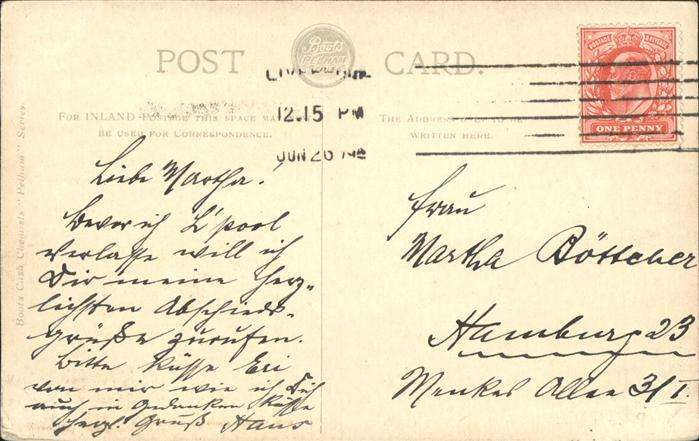 POST CARD.
Boots Pelham
LIVERPOOL
12.15 PM
JUN 26
FOR INLAND POSTAGE THIS SPACE MAY
BE USED FOR CORRESPONDENCE.
THE ADDRESS ONLY TO BE
WRITTEN HERE.
ONE PENNY
Boots Cash Chemists "Pelham" Series.
Liebe Martha!
Bevor ich L'pool
verlasse will ich
Dir meine herz-
lichsten Abschieds-
grüße zurufen.
Bitte küsse Eri
von mir wie ich Dich
auch in Gedanken küsse
herzl. Gruß Hans
Frau
Martha Böttcher
Hamburg 23
Menkes Allee 3/I.